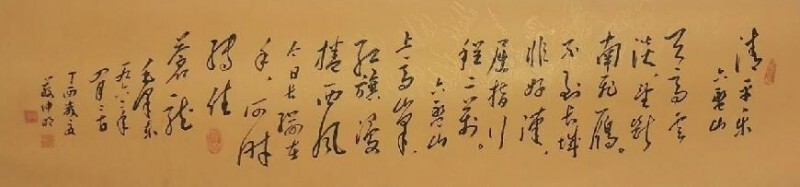 清平乐
六盘山
天高云
淡,望断
南飞雁。
不到长城
非好汉,
屈指行
程二万。
六盘山
上高峯,
红旗漫
捲西风
今日长缨在
手,何时
缚住
苍龙
毛泽东
一九六二年
四月二
丁酉岁
仲明